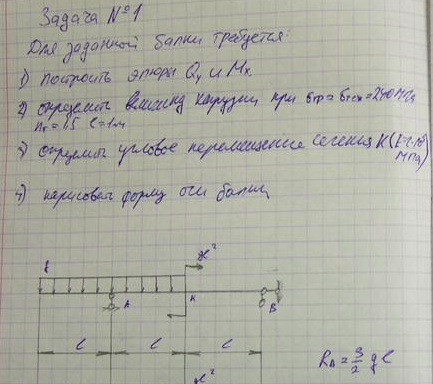 Задача №1
Для заданной балки требуется:
1) построить эпюры Qy и Mx
2) определить величину нагрузки при σтр = σтсж = 240 МПа
nт = 1,5 l = 1м
3) определить угловое перемещение сечения K (E=2·10⁵ МПа)
4) нарисовать форму оси балки
A
K
B
l l l
RA = 3/2 ql